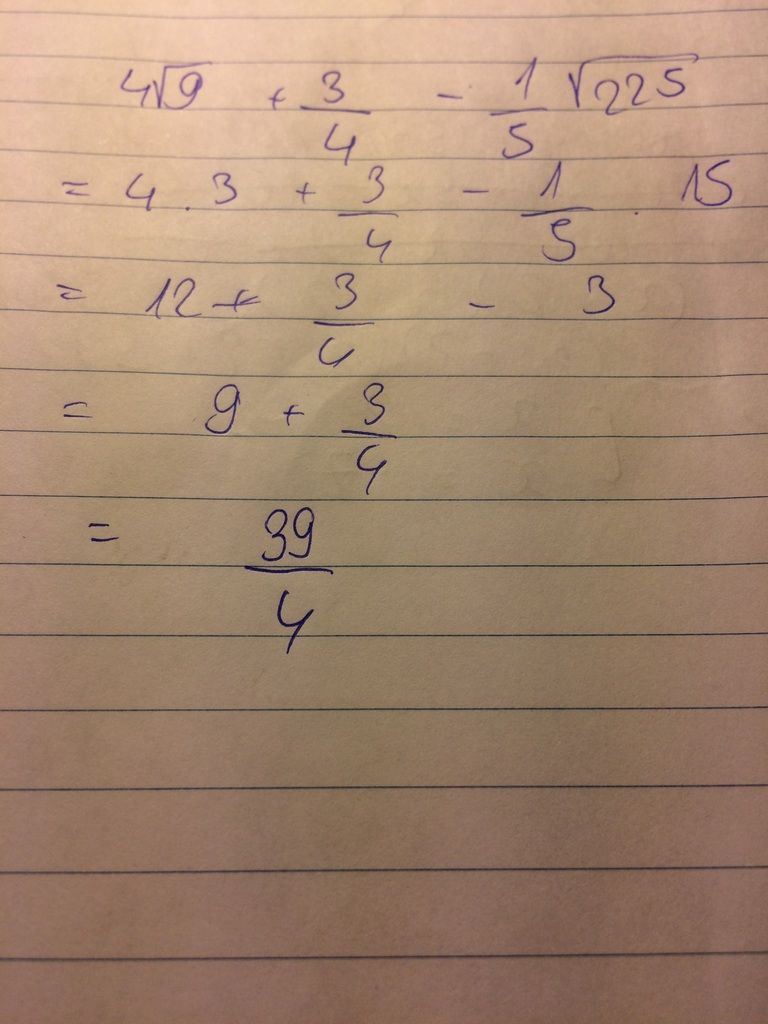 4√9 + 3/4 - 1/5 √225
= 4 . 3 + 3/4 - 1/5 . 15
= 12 + 3/4 - 3
= 9 + 3/4
= 39/4